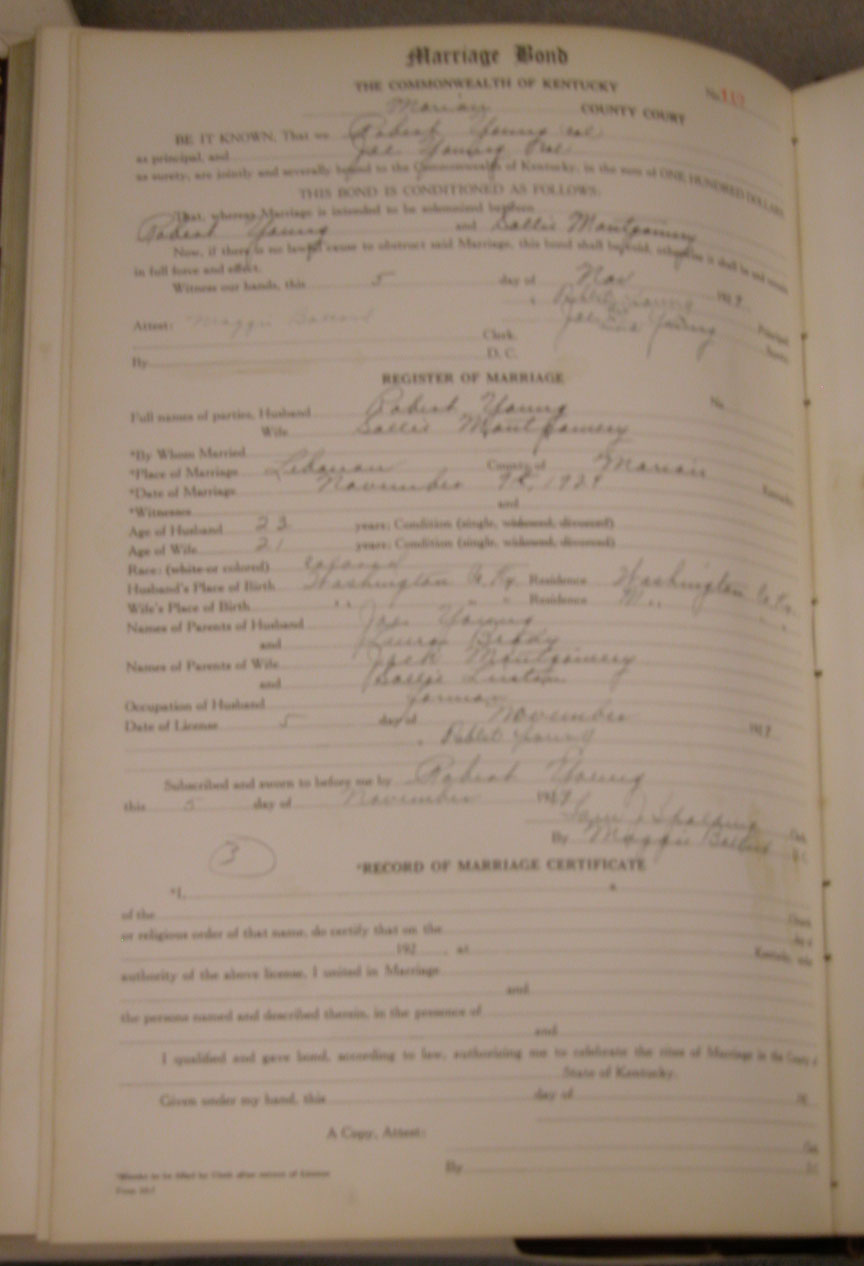 Marriage Bond
THE COMMONWEALTH OF KENTUCKY
No. 117
Marion COUNTY COURT
BE IT KNOWN, That we Robert Young Col
as principal, and Joe Young Col
as surety, are jointly and severally bound to the Commonwealth of Kentucky, in the sum of ONE HUNDRED DOLLARS.
THIS BOND IS CONDITIONED AS FOLLOWS:
That, whereas Marriage is intended to be solemnized between
Robert Young and Sallie Montgomery
Now, if there is no lawful cause to obstruct said Marriage, this bond shall be void, otherwise it shall be and remain
in full force and effect.
Witness our hands, this 5 day of Nov 1929.
Robert Young Principal
Attest: Maggie Joe Young Surety
Clerk.
By D. C.
REGISTER OF MARRIAGE
Full names of parties, Husband Robert Young No.
Wife Sallie Montgomery
*By Whom Married
*Place of Marriage Lebanon County of Marion Kentucky
*Date of Marriage November 1929
*Witnesses and
Age of Husband 23 years; Condition (single, widowed, divorced)
Age of Wife 21 years; Condition (single, widowed, divorced)
Race: (white or colored) Colored
Husband's Place of Birth Washington Co Ky. Residence Washington Co Ky.
Wife's Place of Birth " " " Residence " " "
Names of Parents of Husband Joe Young
and Brady
Names of Parents of Wife Jack Montgomery
and Sallie
Occupation of Husband Farmer
Date of License 5 day of November 192
Robert Young
Subscribed and sworn to before me by Robert Young
this 5 day of November 1929
Sam J Spalding Clerk
By Maggie D. C.
3
*RECORD OF MARRIAGE CERTIFICATE
*I,
of the Church
or religious order of that name, do certify that on the day of
192 , at Kentucky, under
authority of the above license, I united in Marriage
and
the persons named and described therein, in the presence of
and
I qualified and gave bond, according to law, authorizing me to celebrate the rites of Marriage in the County of
State of Kentucky.
Given under my hand, this day of 19
A Copy, Attest:
Clerk
By D.C.
*Blanks to be filled by Clerk after return of License